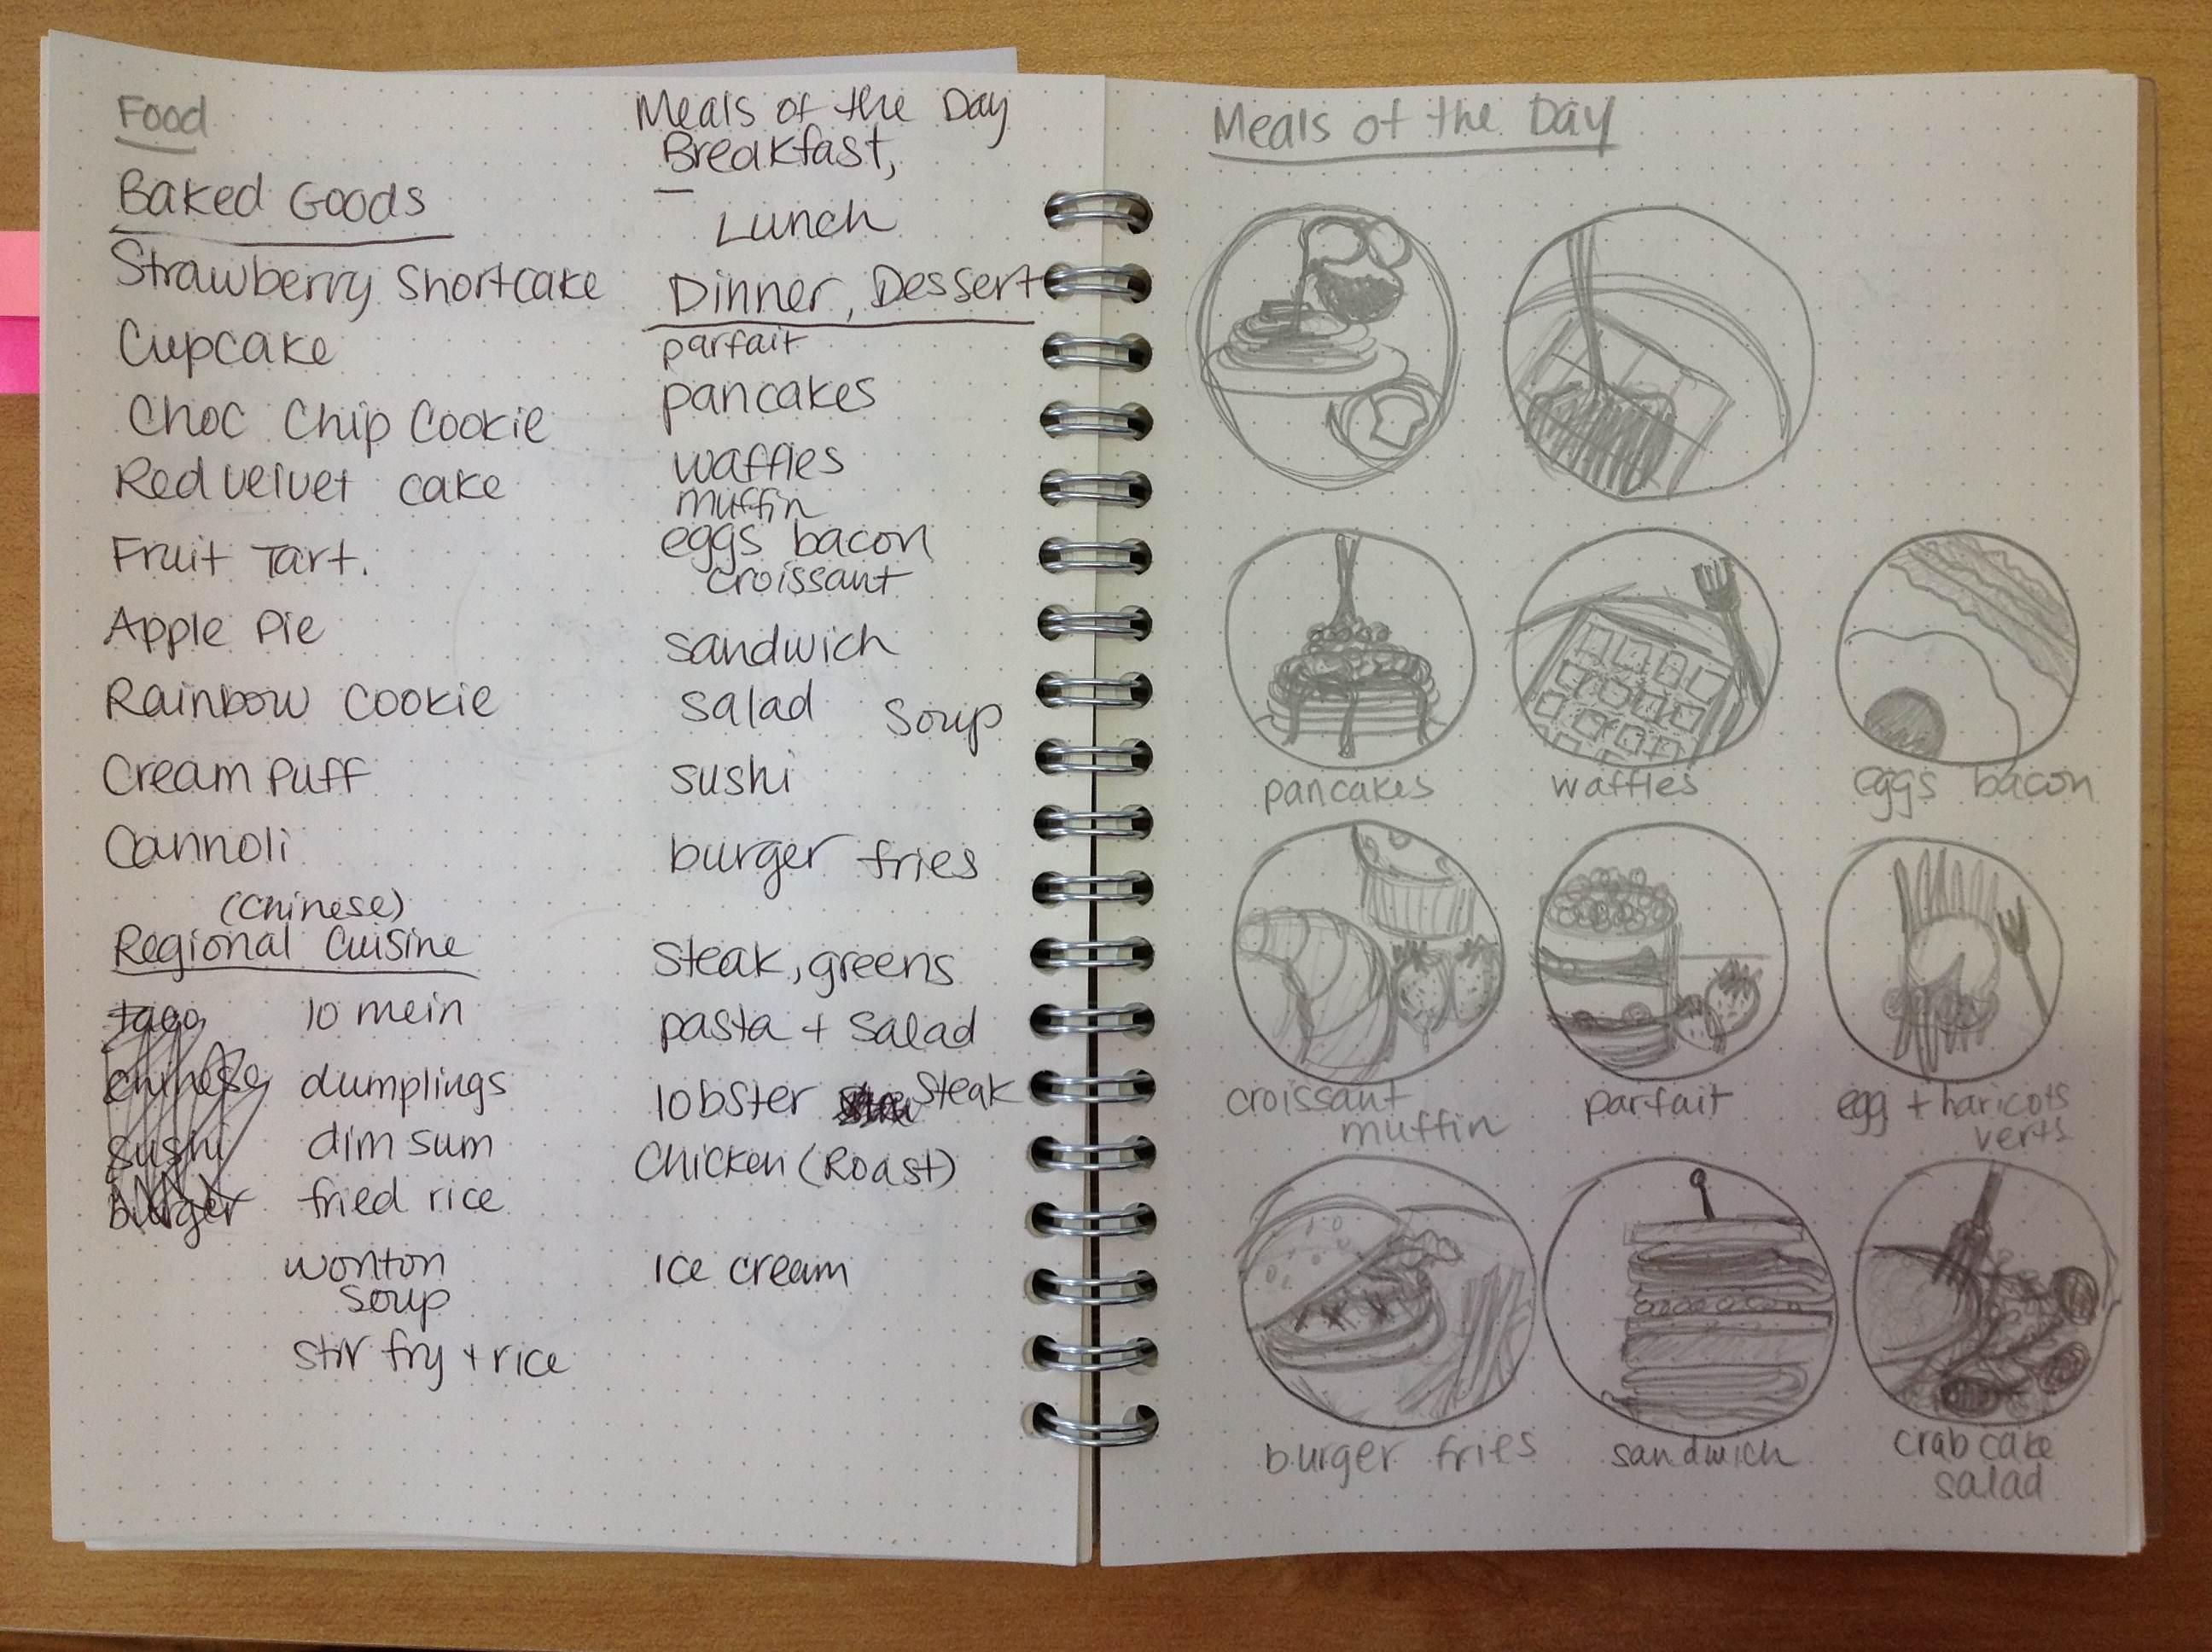 Food
Baked Goods
Strawberry Shortcake
Cupcake
Choc Chip Cookie
Red Velvet cake
Fruit Tart.
Apple Pie
Rainbow Cookie
Cream Puff
Cannoli
(Chinese)
Regional Cuisine
taco
chinese
sushi
burger
lo mein
dumplings
dim sum
fried rice
wonton
soup
stir fry + rice
Meals of the Day
Breakfast,
Lunch
Dinner, Dessert
parfait
pancakes
waffles
muffin
eggs bacon
croissant
sandwich
salad soup
sushi
burger fries
steak, greens
pasta + salad
lobster steak
Chicken (Roast)
Ice cream
Meals of the Day
pancakes
waffles
eggs bacon
croissant
muffin
parfait
egg + haricots
verts
burger fries
sandwich
crab cake
salad